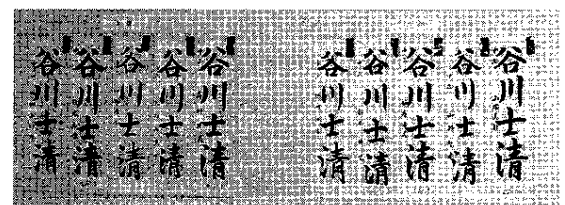 谷川士清
谷川士清
谷川士清
谷川士清
谷川士清
谷川士清
谷川士清
谷川士清
谷川士清
谷川士清